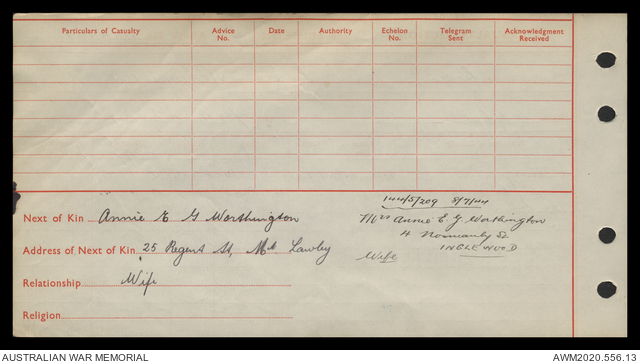 Particulars of Casualty Advice No. Date Authority Echelon No. Telegram Sent Acknowledgment Received
144/5/209 8/7/44
Next of Kin Annie E G Worthington
Mrs Annie E G Worthington
4 Normanby St
INGLEWOOD
Address of Next of Kin 25 Regent St, Mt Lawley
Wife
Relationship Wife
Religion
AUSTRALIAN WAR MEMORIAL AWM2020.556.13